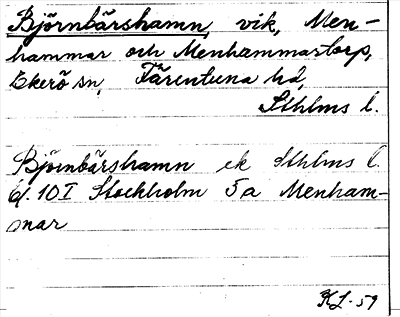 Björnbärshamn, vik, Men-
hammar och Menhammarstorp,
Ekerö sn, Färentuna hd,
Sthlms l.
Björnbärshamn ek Sthlms l.
bl. 10 I Stockholm 5a Menham-
mar
KL-59